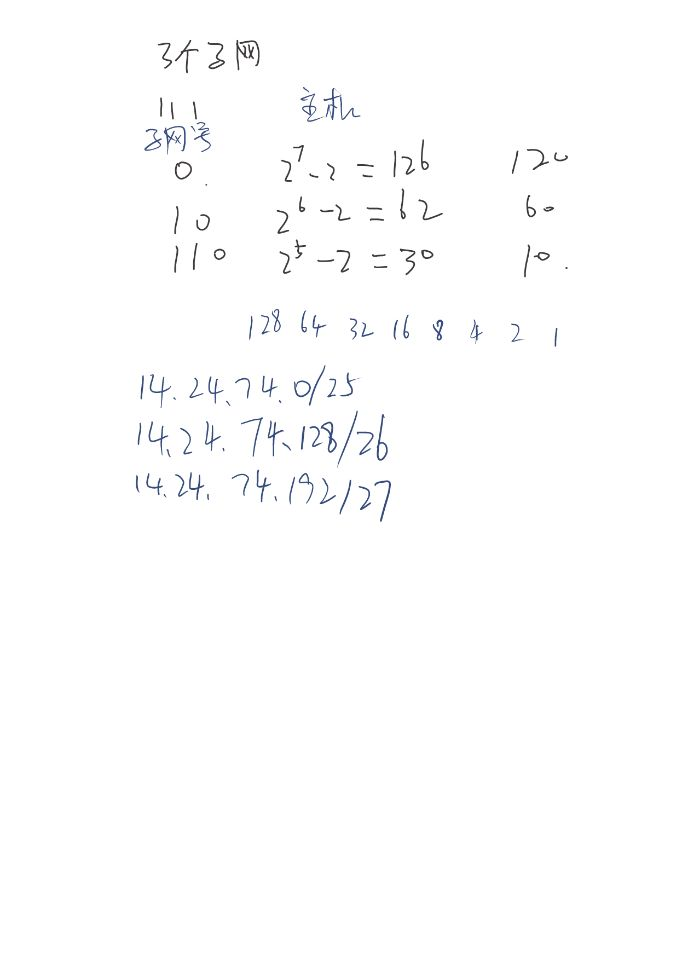 3个子网
111 主机
子网号
0. 2^7-2=126 120
10 2^6-2=62 60
110 2^5-2=30 10.
128 64 32 16 8 4 2 1
14.24.74.0/25
14.24.74.128/26
14.24.74.192/27